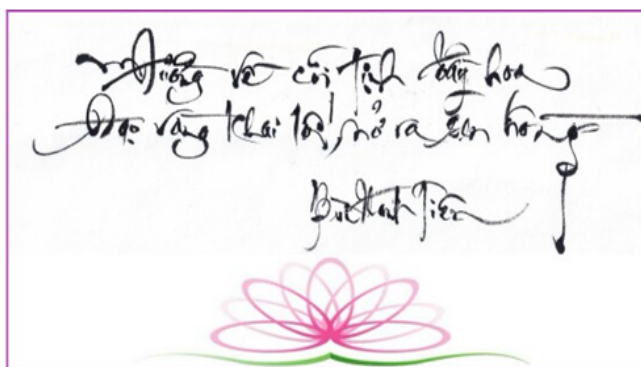 Hướng về cõi tịnh đầy hoa
Đạo vàng khai lối, mở ra sen hồng
Bùi Thanh Tiên